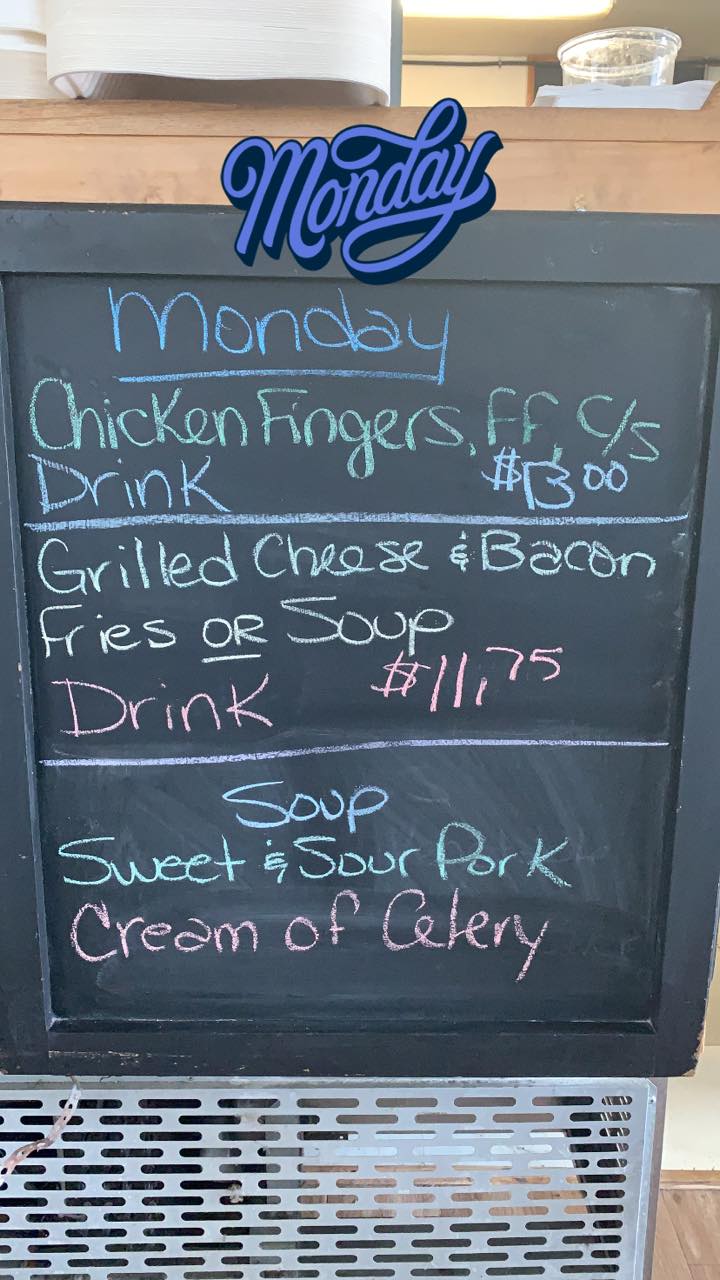 Monday
Monday
Chicken Fingers, FF, C/S
Drink $13.00
Grilled Cheese & Bacon
Fries OR Soup
Drink $11.75
Soup
Sweet & Sour Pork
Cream of Celery